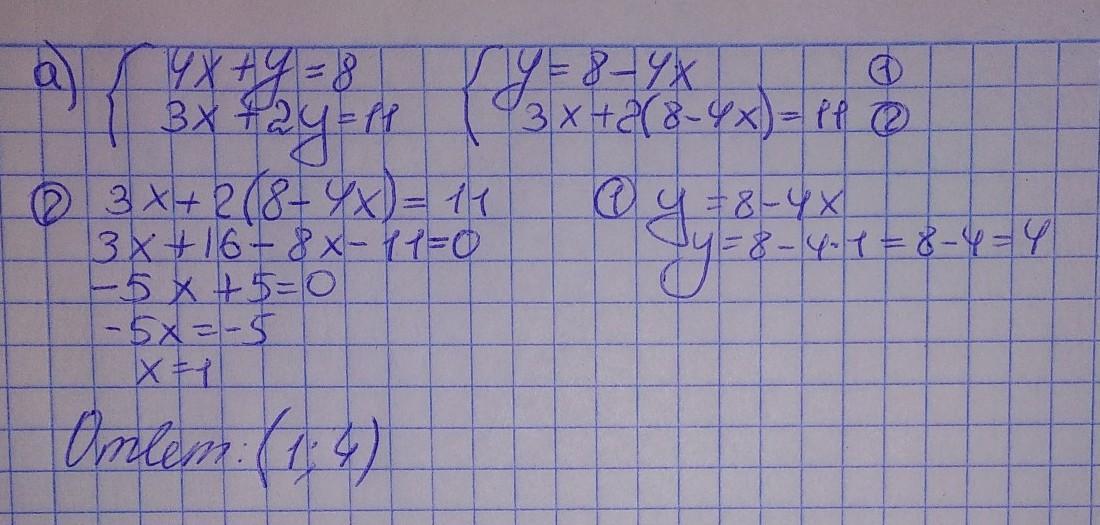 а) { 4x+y=8 { y=8-4x ①
3x+2y=11 3x+2(8-4x)=11 ②
② 3x+2(8-4x)=11 ① y=8-4x
3x+16-8x-11=0 y=8-4·1=8-4=4
-5x+5=0
-5x=-5
x=1
Ответ: (1; 4)